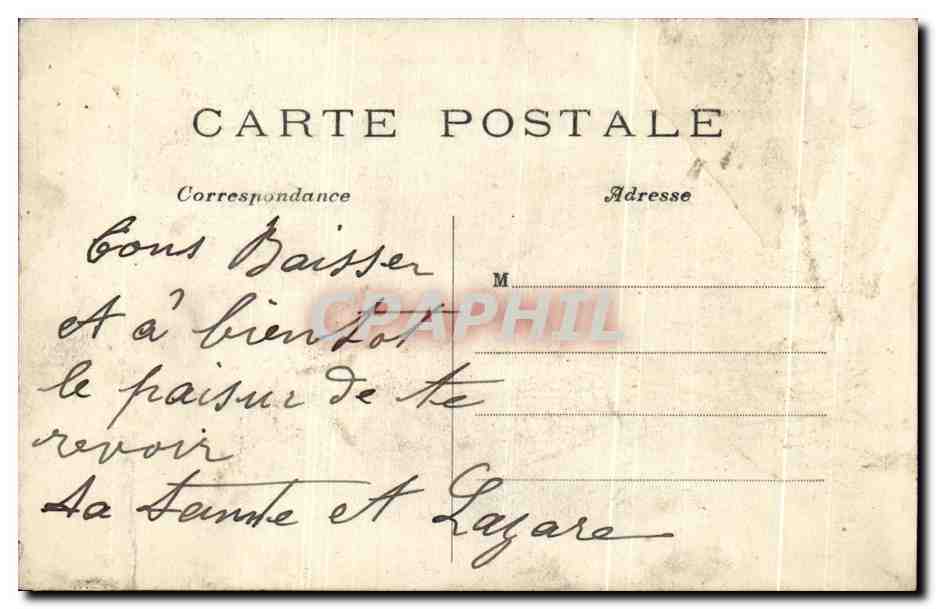 CARTE POSTALE
Correspondance
Adresse
Bons Baisser
et à bientot
le paisur de te
revoir
ta tante et Lazare
M
CPAPHIL